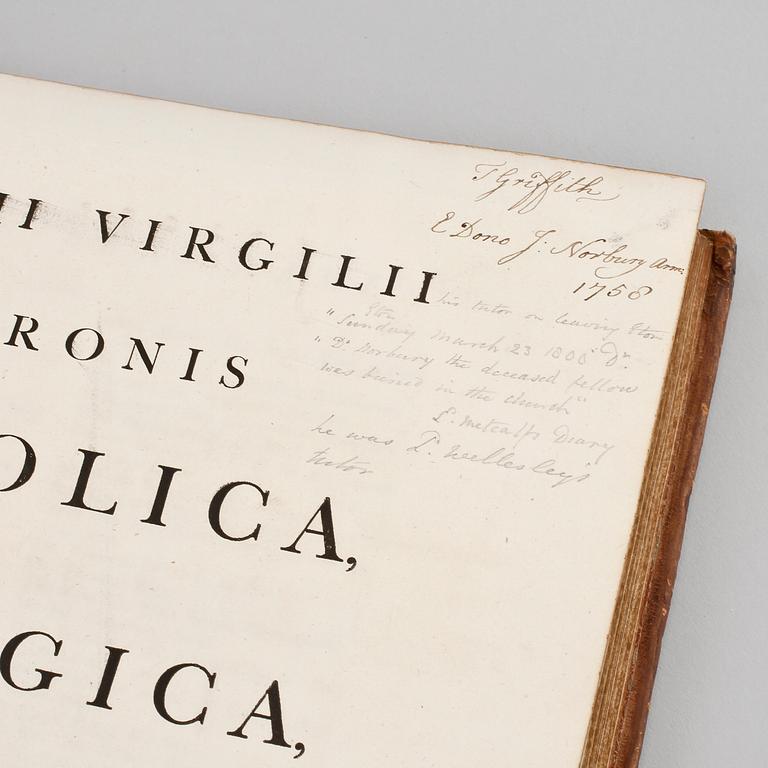 T Griffith
E Dono J: Norbury Arm:
1758
II VIRGILII
his tutor on leaving Eton
Eton
"Sunday March 23 1800 Dr.
RONIS
"Dr Norbury the deceased fellow
was buried in the church"
L. Metcalfs Diary
he was Wellesley's
tutor
OLICA,
GICA,